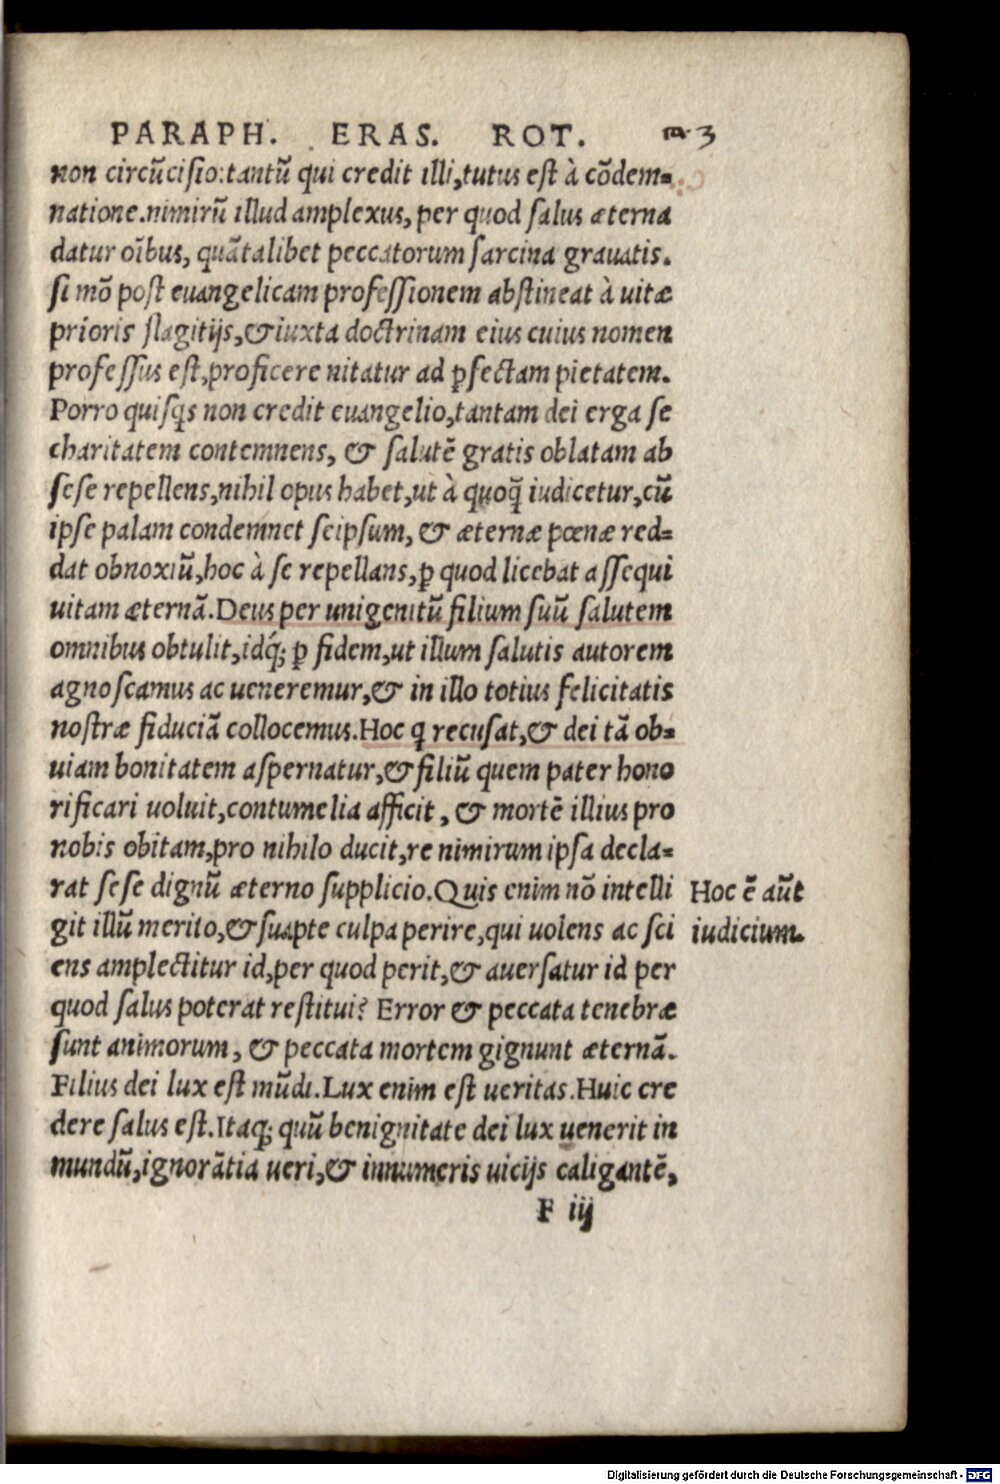 PARAPH. ERAS. ROT. 3
non circũcisio:tantũ qui credit illi,tutus est à cõdem=
natione.nimirũ illud amplexus, per quod salus æterna
datur oĩbus, quãtalibet peccatorum sarcina grauatis.
si mõ post euangelicam professionem abstineat à uitæ
prioris flagitijs,& iuxta doctrinam eius cuius nomen
professus est,proficere nitatur ad ꝑfectam pietatem.
Porro quisꝗs non credit euangelio,tantam dei erga se
charitatem contemnens, & salutẽ gratis oblatam ab
sese repellens,nihil opus habet,ut à quoꝗ̃ iudicetur,cũ
ipse palam condemnet seipsum, & æternæ pœnæ red=
dat obnoxiũ,hoc à se repellans,ꝑ quod licebat assequi
uitam æternã.Deus per unigenitũ filium suũ salutem
omnibus obtulit,idq́; ꝑ fidem,ut illum salutis autorem
agnoscamus ac ueneremur,& in illo totius felicitatis
nostræ fiduciã collocemus.Hoc ꝗ recusat,& dei tã ob=
uiam bonitatem aspernatur,& filiũ quem pater hono
rificari uoluit,contumelia afficit, & mortẽ illius pro
nobis obitam,pro nihilo ducit,re nimirum ipsa decla=
rat sese dignũ æterno supplicio.Quis enim nõ intelli
git illũ merito,& suapte culpa perire,qui uolens ac sci
ens amplectitur id,per quod perit,& auersatur id per
quod salus poterat restitui? Error & peccata tenebræ
sunt animorum, & peccata mortem gignunt æternã.
Filius dei lux est mũdi.Lux enim est ueritas.Huic cre
dere salus est.Itaq; quũ benignitate dei lux uenerit in
mundũ,ignorãtia ueri,& innumeris uicijs caligantẽ,
Hoc ẽ aũt
iudicium.
F iij
Digitalisierung gefördert durch die Deutsche Forschungsgemeinschaft - DFG